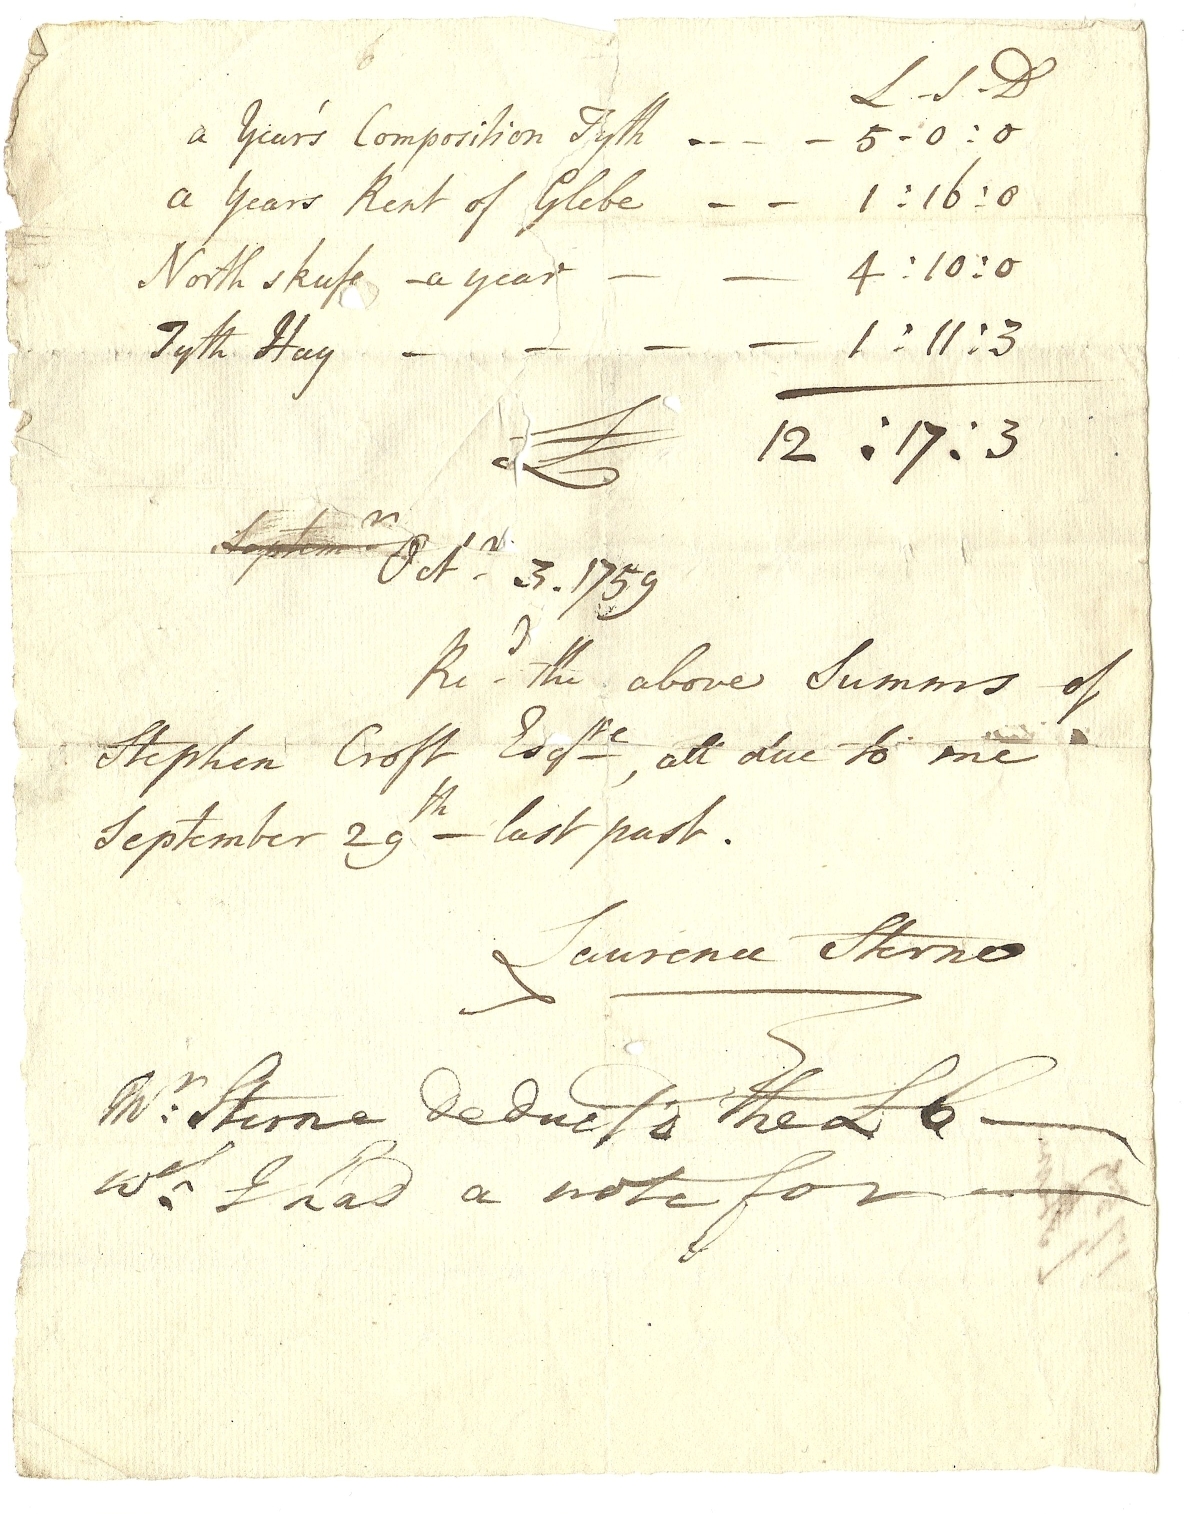 L - S - D
a Year's Composition Tyth - - - - 5 - 0 : 0
a Years Rent of Glebe - - 1 : 16 : 0
North skufe - a year - - 4 : 10 : 0
Tyth Hay - - - - 1 : 11 : 3
£ 12 : 17 : 3
Septemr Octr 3. 1759
Recd the above Summs of
Stephen Croft Esqre, all due to me
September 29th - last past.
Laurence Sterne
Mr: Sterne deducts the £6
wch I had a note for